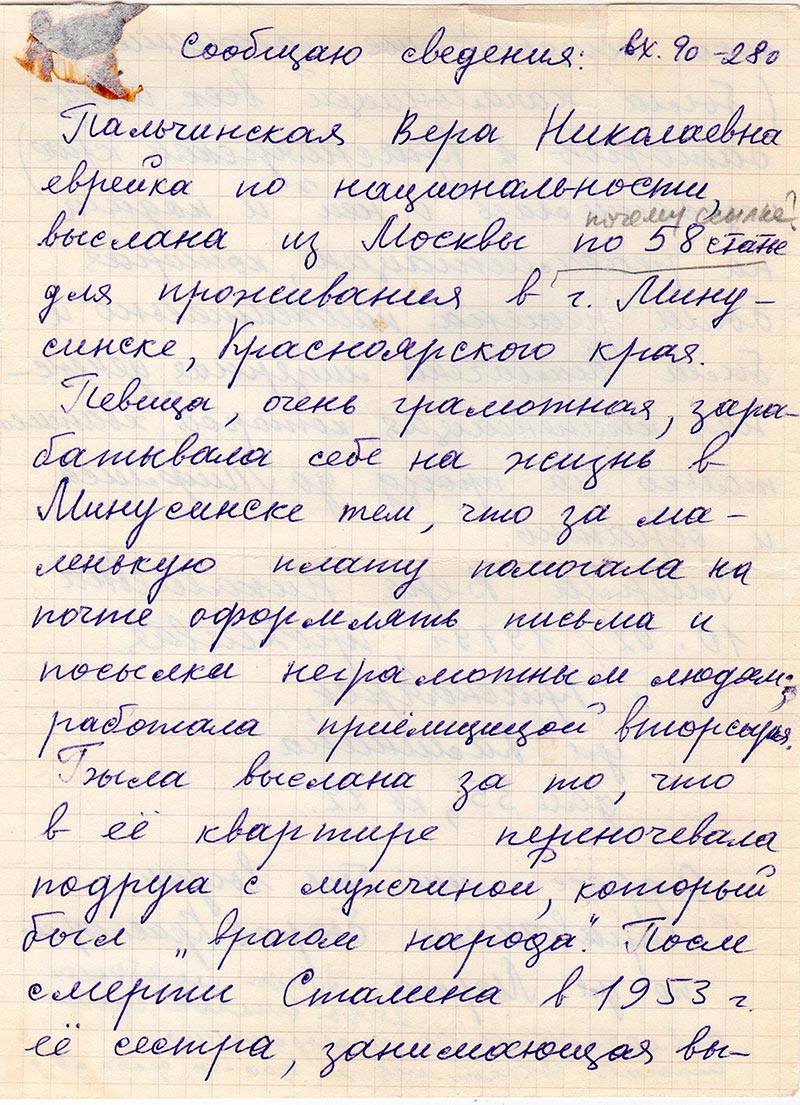 Сообщаю сведения: вх. 90-280
Пальчинская Вера Николаевна
еврейка по национальности,
почему ссылке?
выслана из Москвы по 58 статье
для проживания в г. Мину-
синске, Красноярского края.
Певица, очень грамотная, зара-
батывала себе на жизнь в
Минусинске тем, что за ма-
ленькую плату помогала на
почте оформлять письма и
посылки неграмотным людям;
работала приёмщицей вторсырья.
Была выслана за то, что
в её квартире переночевала
подруга с мужчиной, который
был „врагом народа". После
смерти Сталина в 1953 г.
её сестра, занимающая вы-